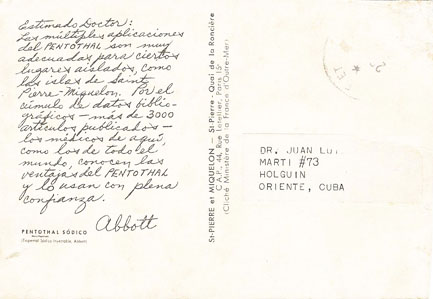 Estimado Doctor:
Las múltiples aplicaciones
del PENTOTHAL son muy
adecuadas para ciertos
lugares aislados, como
las islas de Saint
Pierre-Miquelon. Por el
cúmulo de datos biblio-
gráficos - más de 3000
artículos publicados -
los médicos de aquí,
como los de todo el
mundo, conocen las
ventajas del PENTOTHAL
y lo usan con plena
confianza.
Abbott
PENTOTHAL SÓDICO
(Tiopental Sódico Inyectable, Abbott)
St-PIERRE et MIQUELON — St-Pierre - Quai de la Roncière
C.A.P., 44, Rue Letellier, Paris 15e
(Cliché Ministère de la France d'Outre-Mer)
DR. JUAN LUI
MARTI #73
HOLGUIN
ORIENTE, CUBA